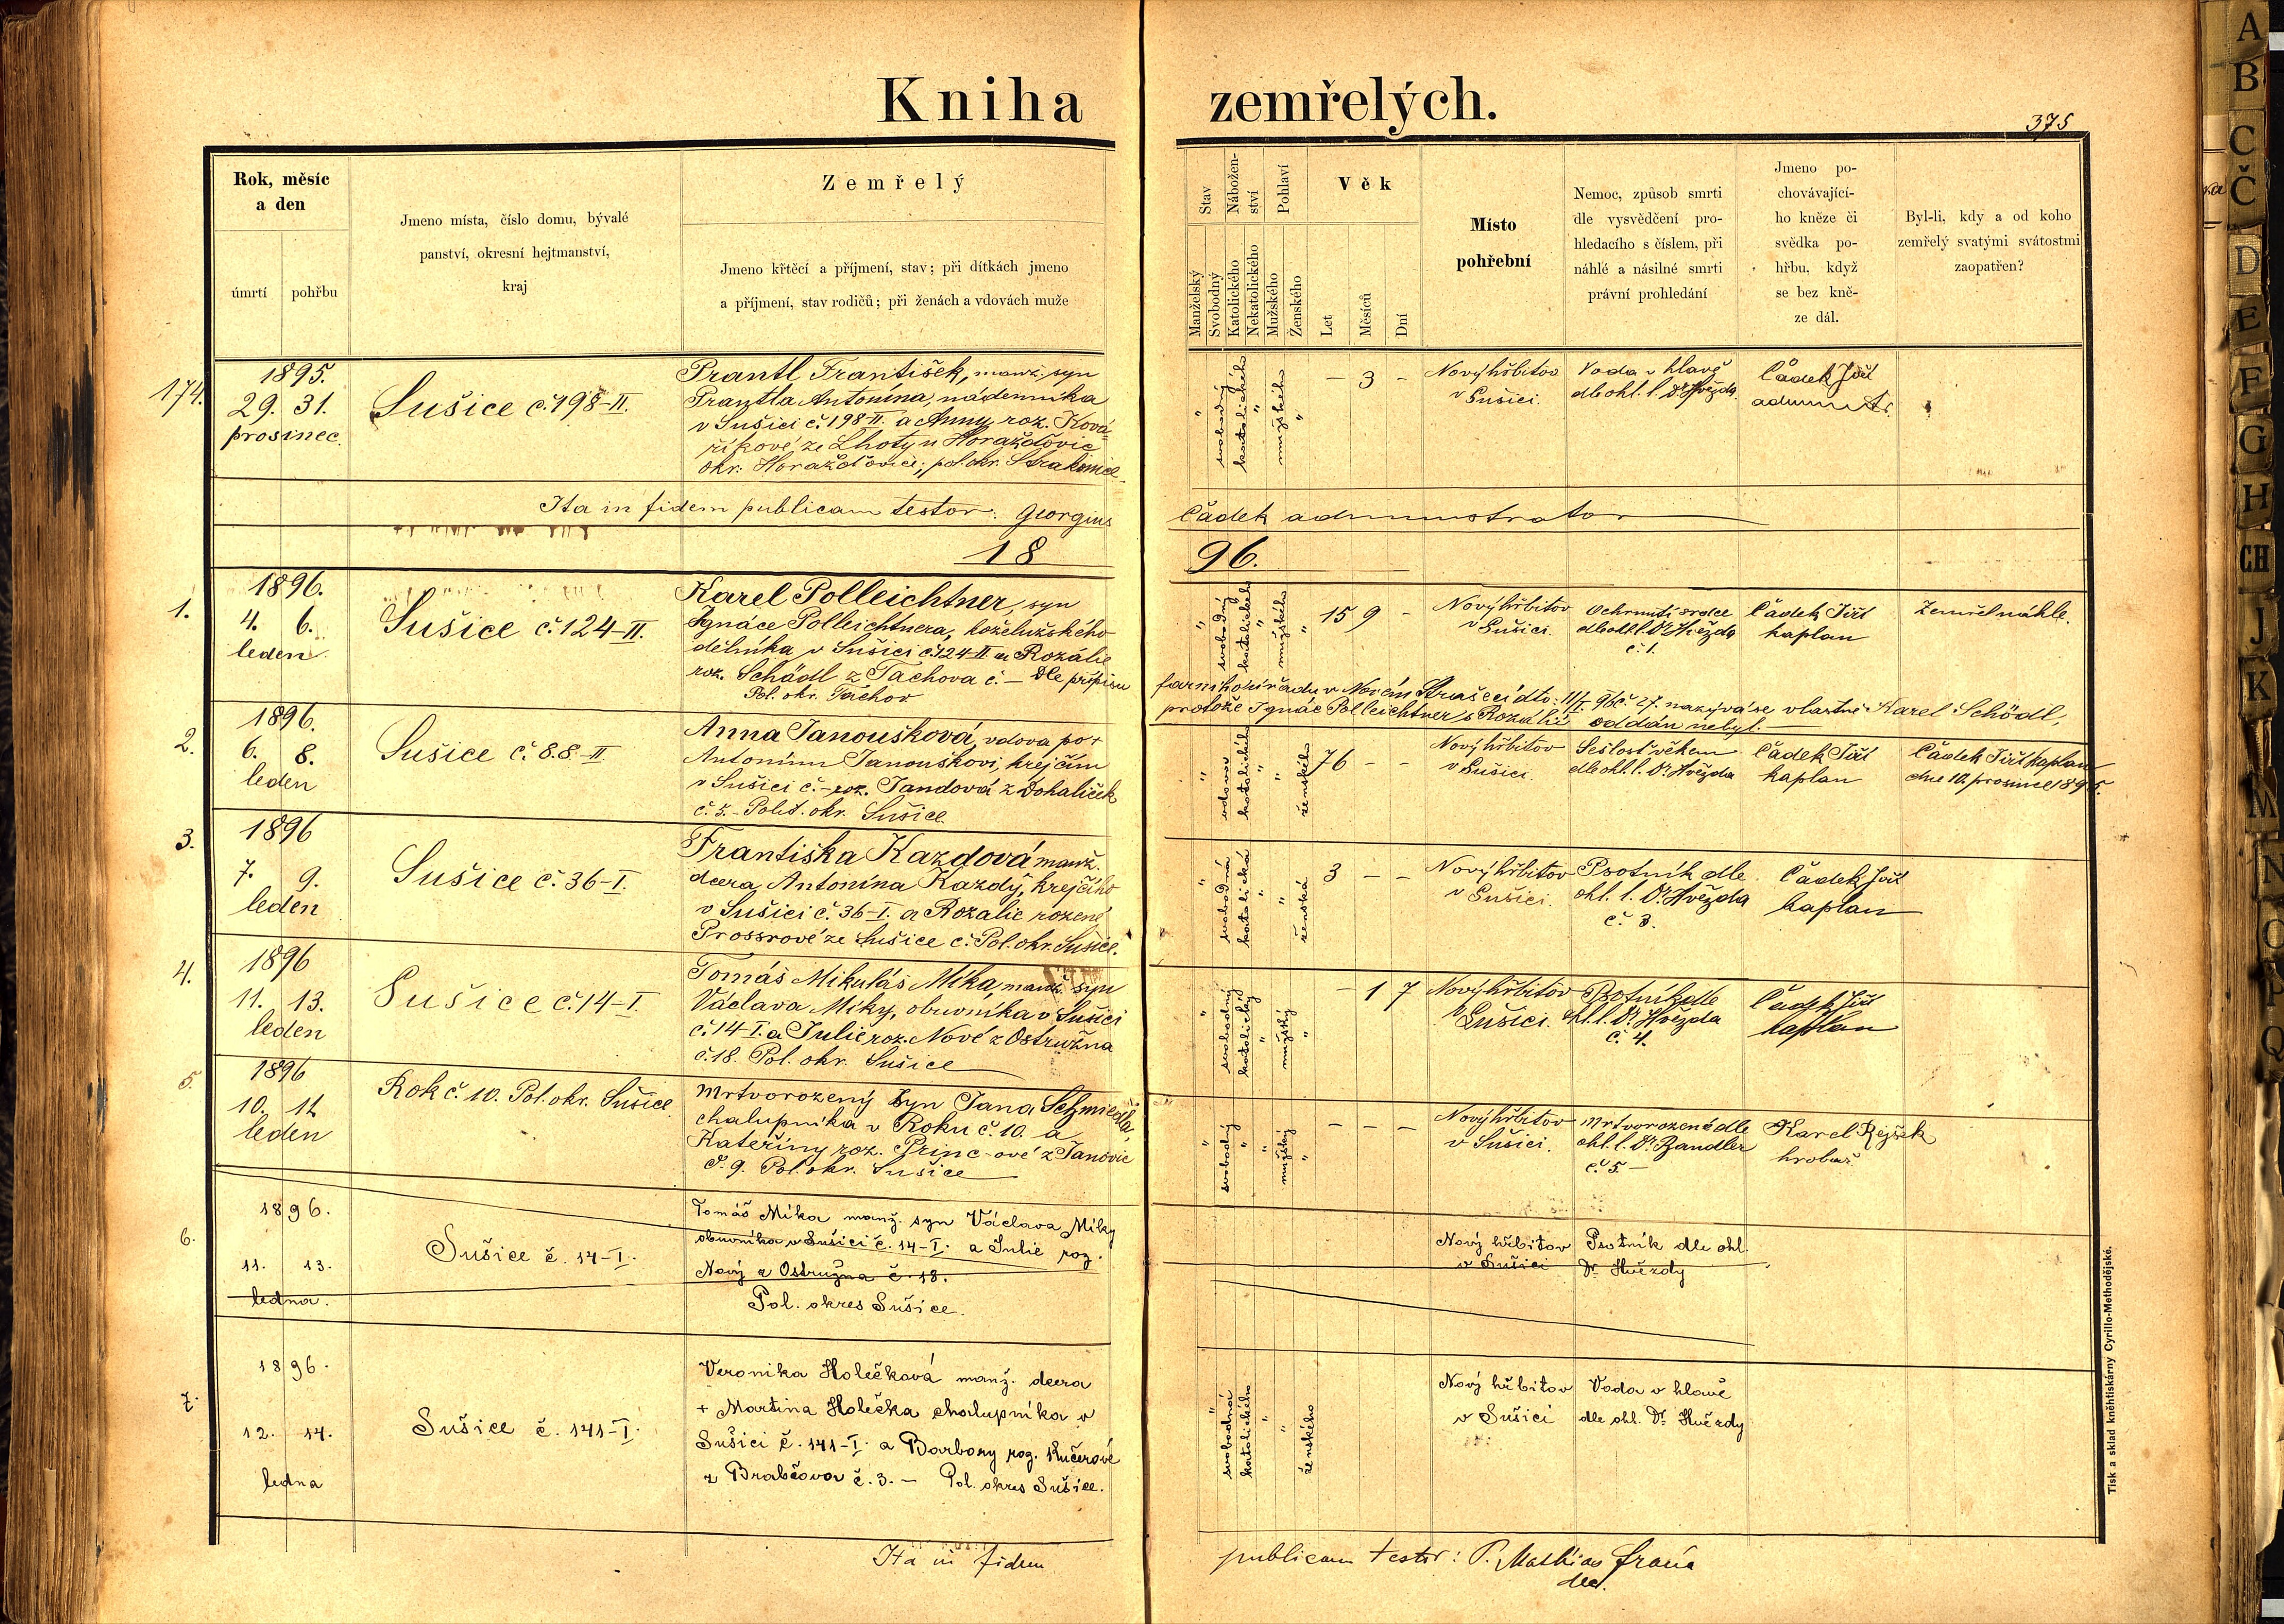 Kniha zemřelých.
375
Rok, měsíc
a den
úmrtí
pohřbu
Jmeno místa, číslo domu, bývalé
panství, okresní hejtmanství,
kraj
Zemřelý
Jmeno křtěcí a příjmení, stav; při dítkách jmeno
a příjmení, stav rodičů; při ženách a vdovách muže
Stav
Nábožen-
ství
Pohlaví
Věk
Manželský
Svobodný
Katolického
Nekatolického
Mužského
Ženského
Let
Měsíců
Dní
Místo
pohřební
Nemoc, způsob smrti
dle vysvědčení pro-
hledacího s číslem, při
náhlé a násilné smrti
právní prohledání
Jmeno po-
chovávající-
ho kněze či
svědka po-
hřbu, když
se bez kně-
ze dál.
Byl-li, kdy a od koho
zemřelý svatými svátostmi
zaopatřen?
174.
1895.
29. 31.
prosinec.
Sušice č. 198-II.
Prantl František, manž. syn
Prantla Antonína, nádenníka
v Sušici č. 198-II. a Anny roz. Ková-
říkové ze Lhoty u Horažďovic
okr. Horažďovice, pol. okr. Strakonice
" svobodný
katolického "
mužského "
- 3 -
Nový hřbitov
v Sušici.
Voda v hlavě
dle ohl. l. Dr. Hvězda
Čádek Jiří
administr.
Ita in fidem publicam testor: Georgius Čádek administrator
1896.
1.
1896.
4. 6.
leden
Sušice č. 124-II.
Karel Polleichtner, syn
Ignáce Polleichtnera, koželužského
dělníka v Sušici č. 124-II a Rozálie
roz. Schödl z Tachova č. — Dle přípisu
Pol. okr. Tachov
farního úřadu v Novém Strašecí dto. 11/I. 96 č. 27. nazývá se vlastně Karel Schödl,
protože Ignác Polleichtner s Rozálií oddán nebyl.
" svobodný
katolického "
mužského "
15 9 -
Nový hřbitov
v Sušici.
Ochrnutí srdce
dle ohl. l. Dr. Hvězda
č. 1.
Čádek Jiří
kaplan
Zemřel náhle.
2.
1896.
6. 8.
leden
Sušice č. 88-II.
Anna Janoušková, vdova po +
Antonínu Janouškovi, krejčím
v Sušici č. - roz. Jandová z Dohaliček
č. 5. - Polit. okr. Sušice.
katolického "
" ženského
76 - -
Nový hřbitov
v Sušici.
Sešlost věkem
dle ohl. l. Dr. Hvězda
Čádek Jiří
kaplan
Čádek Jiří kaplan
dne 10. prosince 1895.
3.
1896
7. 9.
leden
Sušice č. 36-I.
Františka Kazdová manž.
dcera Antonína Kazdy, krejčího
v Sušici č. 36-I. a Rozalie rozené
Prossrové ze Sušice č. Pol. okr. Sušice.
" svobodná
katolická "
" ženská
3 - -
Nový hřbitov
v Sušici.
Psotník dle
ohl. l. Dr. Hvězda
č. 3.
Čádek Jiří
kaplan
4.
1896
11. 13.
leden
Sušice č. 14-I.
Tomáš Mikuláš Míka, manž. syn
Václava Míky, obuvníka v Sušici
č. 14-I. a Julie roz. Nové z Ostružna
č. 18. Pol. okr. Sušice
" svobodný
katolický "
mužský "
- 1 7
Nový hřbitov
v Sušici.
Psotník dle
ohl. l. Dr. Hvězda
č. 4.
Čádek Jiří
kaplan
5.
1896
10. 12
leden
Rok č. 10. Pol. okr. Sušice
Mrtvorozený syn Jana Schmiedla,
chalupníka v Roku č. 10. a
Kateřiny roz. Princ-ové z Janovic
č. 9. Pol. okr. Sušice
" svobodný
"
mužský "
- - -
Nový hřbitov
v Sušici.
Mrtvorozené dle
ohl. l. Dr. Bandler
č. 5 -
Karel Rejšek
hrobař
6.
1896.
11. 13.
ledna.
Sušice č. 14-I.
Tomáš Míka manž. syn Václava Míky
obuvníka v Sušici č. 14-I. a Julie roz.
Nový z Ostružna č. 18.
Pol. okres Sušice.
Nový hřbitov
v Sušici
Psotník dle ohl.
Dr. Hvězdy
7.
1896.
12. 14.
ledna
Sušice č. 141-I.
Veronika Holečková manž. dcera
+ Martina Holečka chalupníka v
Sušici č. 141-I. a Barbory roz. Kučerové
z Brabčova č. 3. — Pol. okres Sušice.
" svobodná
katolického "
" ženského
Nový hřbitov
v Sušici
Voda v hlavě
dle ohl. Dr. Hvězdy
Ita in fidem publicam testor: P. Mathias
Tisk a sklad kněhtiskárny Cyrillo-Methodějské.
A
B
C
Č
D
E
F
G
H
CH
J
K
M
N
O
P
Q